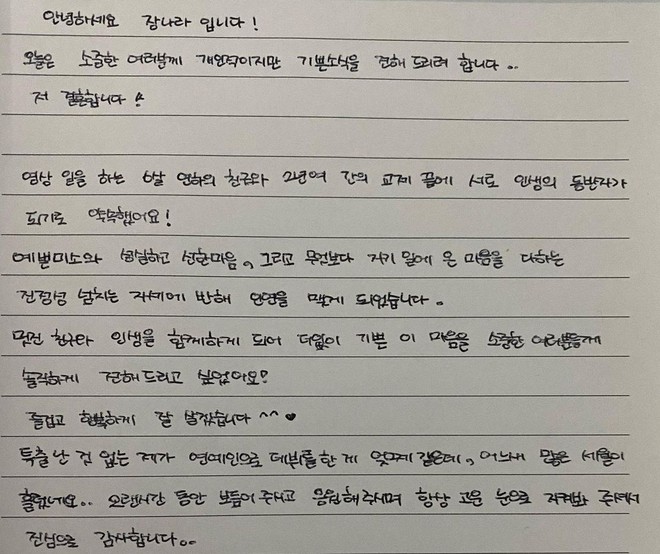 안녕하세요 장나라 입니다!
오늘은 소중한 여러분께 개인적이지만 기쁜소식을 전해 드리려 합니다..
저 결혼합니다!!
영상 일을 하는 6살 연하의 친구와 2년여 간의 교제 끝에 서로 인생의 동반자가
되기로 약속했어요!
예쁜미소와 성실하고 선한마음, 그리고 무엇보다 자기 일에 온 마음을 다하는
진정성 넘치는 자세에 반해 인연을 맺게 되었습니다.
멋진 친구와 인생을 함께하게 되어 더없이 기쁜 이 마음을 소중한 여러분들께
솔직하게 전해드리고 싶었어요!
즐겁고 행복하게 잘 살겠습니다 ^^ ♥
특출난 것 없는 제가 연예인으로 데뷔를한 게 엊그제 같은데, 어느새 많은 세월이
흘렀네요.. 오랜시간 동안 보듬어 주시고 응원해주시며 항상 고운 눈으로 지켜봐 주셔서
진심으로 감사합니다..